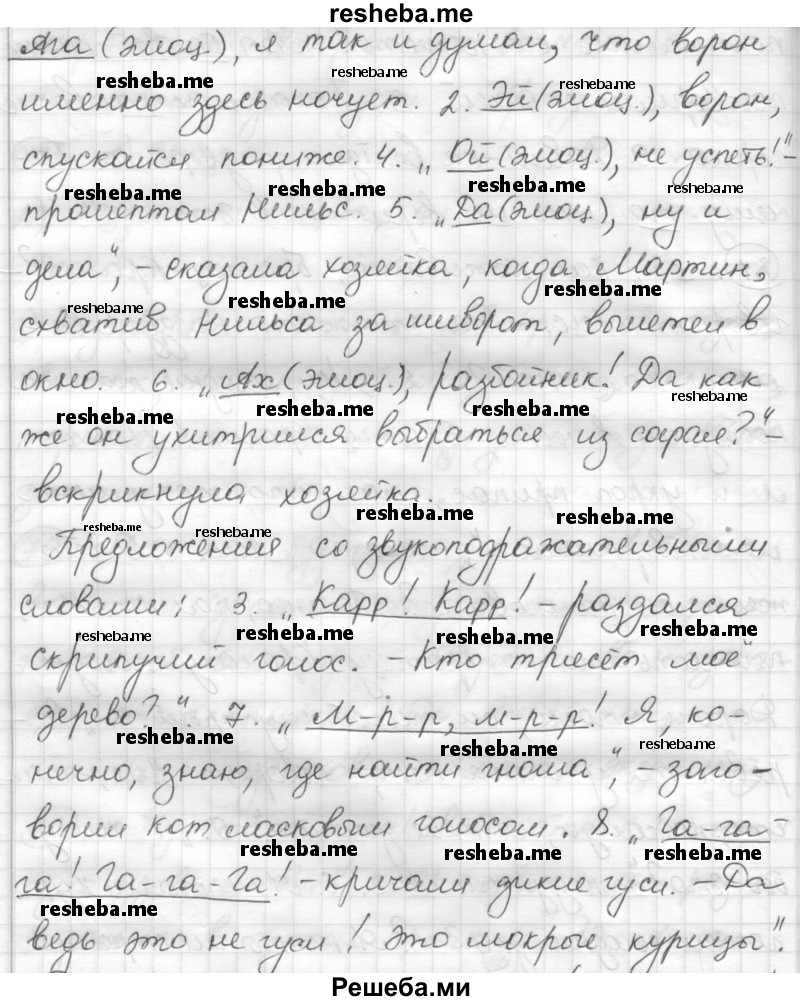 resheba.me
Ага (эмоц.), я так и думал, что ворон
resheba.me resheba.me resheba.me
именно здесь ночует. 2. Эй (эмоц.), ворон,
спускайся пониже. 4. „Ой (эмоц.), не успеть!“ –
resheba.me resheba.me resheba.me
прошептал Нильс. 5. „Да (эмоц.), ну и
дела“, – сказала хозяйка, когда Мартин,
resheba.me resheba.me resheba.me
схватив Нильса за шиворот, вылетел в
окно. 6. „Ах (эмоц.), разбойник! Да как
resheba.me resheba.me resheba.me resheba.me
же он ухитрился выбраться из сарая?“ –
вскрикнула хозяйка.
resheba.me resheba.me
resheba.me resheba.me
Предложения со звукоподражательными
словами: 3. „Карр! Карр! – раздался
resheba.me resheba.me resheba.me resheba.me
скрипучий голос. – Кто трясёт моё
дерево?“. 7. „М-р-р, м-р-р! Я, ко-
resheba.me resheba.me resheba.me
нечно, знаю, где найти гнома“, – заго-
ворил кот ласковым голосом. 8. „Га-га-
resheba.me resheba.me resheba.me
га! Га-га-га! – кричали дикие гуси. – Да
resheba.me
ведь это не гуси! Это мокрые курицы“.
Решеба.ми